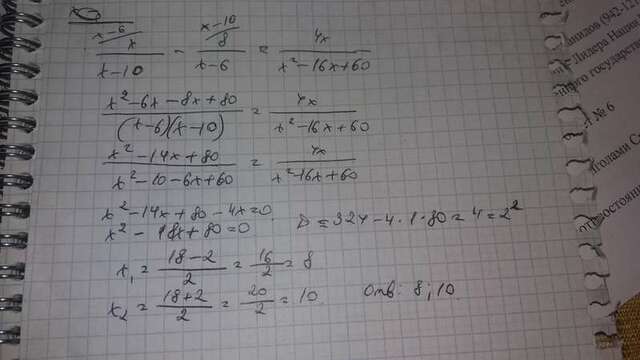 x-6/ x / x-10 - x-10/ 8 / x-6 = 4x / x²-16x+60
x²-6x-8x+80 / (x-6)(x-10) = 4x / x²-16x+60
x²-14x+80 / x²-10-6x+60 = 4x / x²-16x+60
x²-14x+80-4x=0
x²-18x+80=0
D=324-4·1·80=4=2²
x₁=18-2/2=16/2=8
x₂=18+2/2=20/2=10
Отв: 8; 10.
нидов (942-12
Лидера Нации
ного государс
№ 6
иголами С